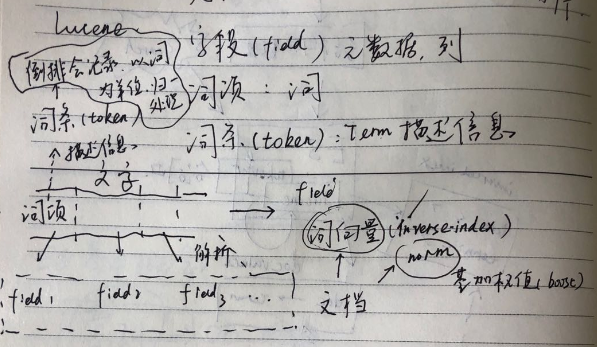 Lucene
字段(field) 元数据,列
倒排会记录,以词
为单位,归一
处理
词项:词
词条(token)
词条(token):Term描述信息
描述信息
文字
词项
field
词向量(inverse-index)
解析
norm
基加权值(boost)
文档
field1 field2 field3 ...